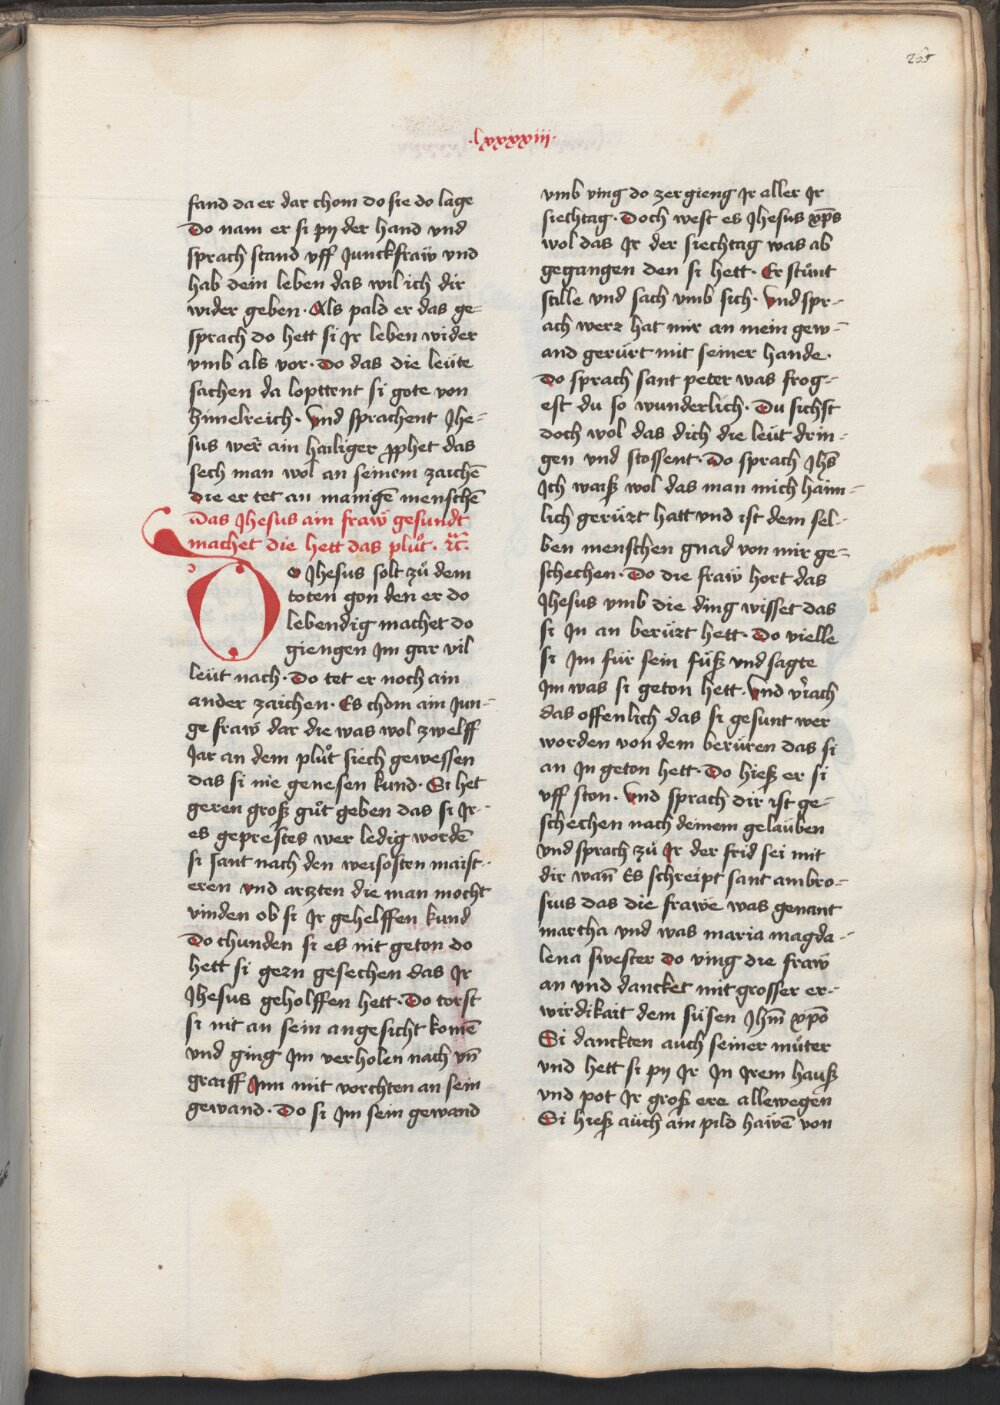 205
·lxxxxiii·
fand da er dar chom do sie do lage
Do nam er si py der hand vnd
sprach stand vff Junckfraw vnd
hab dein leben das wil ich dir
wider geben· Als pald er das ge-
sprach do hett si Jr leben wider
vmb als vor· Do das die leüte
sachen da lopttent si gote von
himelreich· Vnd sprachent Jhe-
sus wer̄ ain hailiger ꝓphet das
sech man wol an seinem zaichē
die er tet an mangē menschē
Das Jhesus ain fraw gesundt
machet die hett das plůt· ꝛc̃.
Do Jhesus solt zů dem
toten gon den er do
lebendig machet do
giengen Jm gar vil
leüt nach· Do tet er noch ain
ander zaichen· Es chom ain Jun-
ge fraw dar die was wol zwelff
Jar an dem plůt siech gewessen
das si nie genesen kund· Si het
geren groß gůt geben das si Jr-
es geprestes wer ledig wordē
si sant nach den weisosten maist-
eren vnd arzten die man mocht
vinden ob si Jr gehelffen kund
Do chunden si es nit geton do
hett si gern gesechen das Jr
Jhesus geholffen hett· Do torst
si nit an sein angesicht komē
vnd ging Jm verholen nach vn̄
graiff Jnn mit vorchten an sein
gewand· Do si Jm sein gewand
vmb ving do zergieng Jr aller Jr
siechtag· Doch west es Jhesus xp̄s
wol das Jr der siechtag was ab
gegangen den si hett· Er stůnt
stille vnd sach vmb sich· Vnd spr-
ach wer hat mir an mein gew-
and gerürt mit seiner hande·
Do sprach sant peter was frog-
est du so wunderlich· Du sichst
doch wol das dich die leüt drin-
gen vnd stossent· Do sprach Jhs̄
Jch waiß wol das man mich haim-
lich gerürt hatt vnd ist dem sel-
ben menschen gnad von mir ge-
schechen· Do die fraw hort das
Jhesus vmb die ding wisset das
si Jn an berürt hett· Do vielle
si Jm für sein füß vnd sagte
Jm was si geton hett· Vnd v̉iach
das offenlich das si gesunt wer
worden von dem berüren das si
an Jn geton hett· Do hieß er si
vff ston· Vnd sprach dir ist ge-
schechen nach deinem gelauben
Vnd sprach zů Jr der frid sei mit
dir wan̄ Es schreipt sant ambro-
sius das die frawe was genant
martha vnd was maria magda-
lena swester Do ving die fraw
an vnd dancket mit grosser er-
wirdikait dem süsen Jhm̄ xpō
Si danckten auch seiner můter
vnd hett si py Jr Jn Jrem hauß
vnd pot Jr groß ere allewegen
Si hieß auch ain pild hawē von